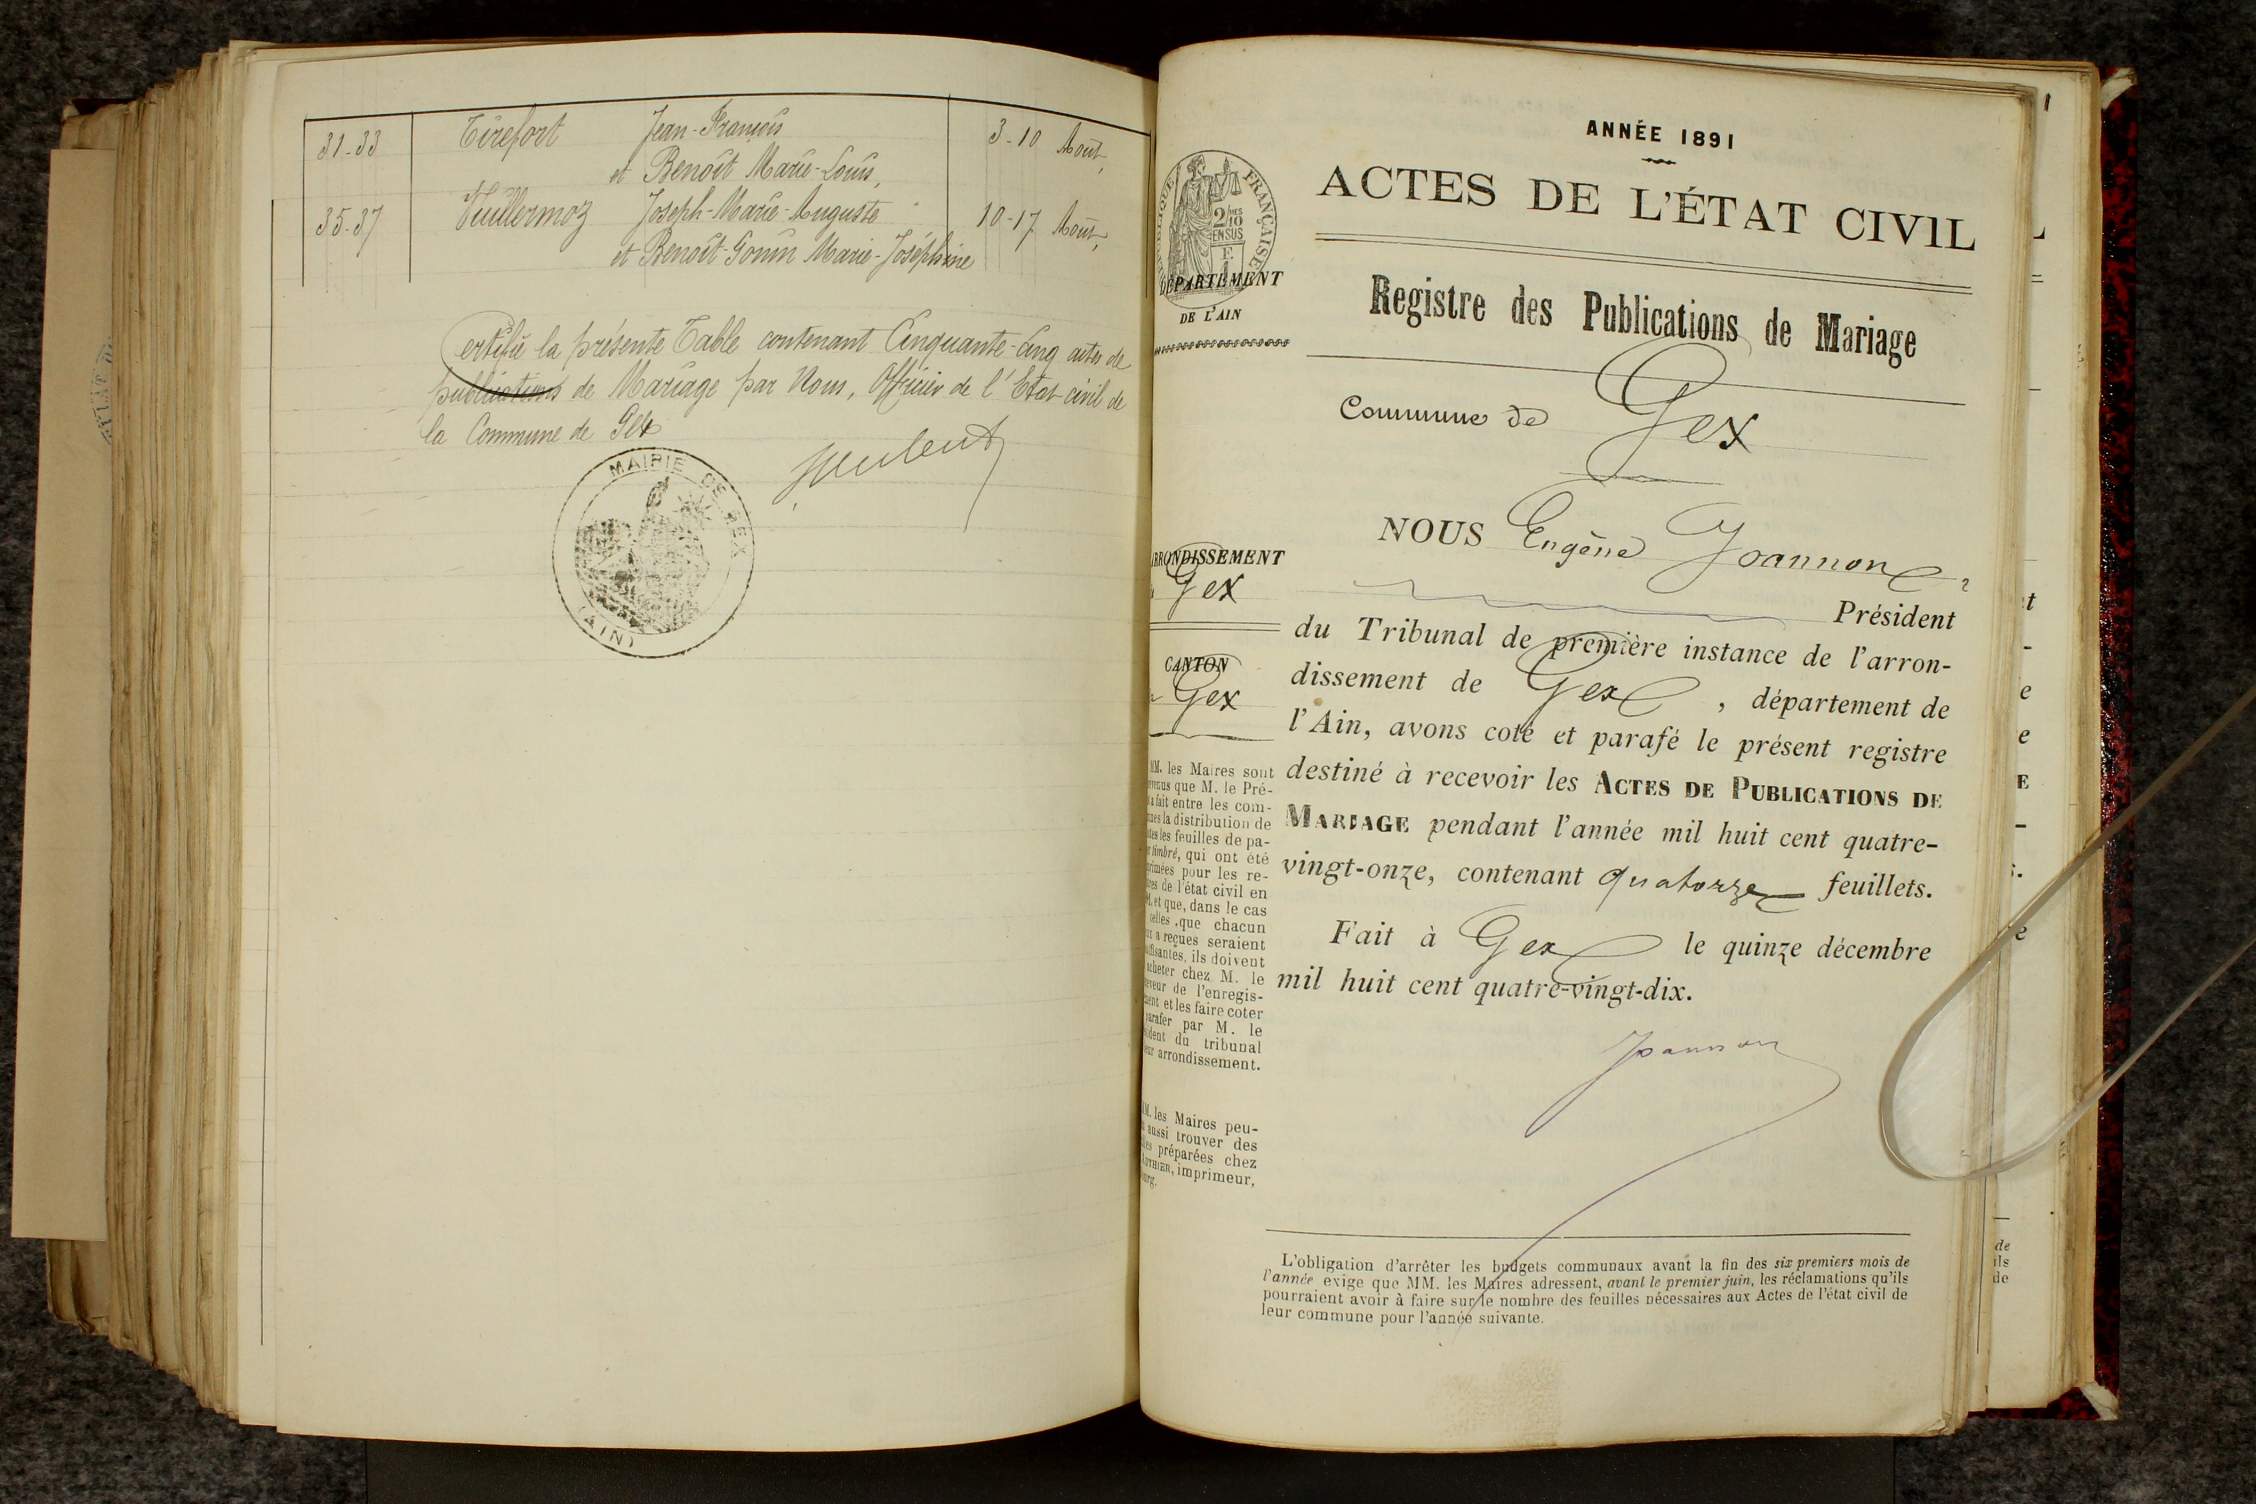 31-33 Tirefort Jean-François 3-10 Août,
et Benoît Marie-Louis,
35-37 Vuillermoz Joseph-Marie-Auguste 10-17 Août,
et Benoît-Gonin Marie-Joséphine
Certifié la présente Table contenant Cinquante-cinq actes de
publications de Mariage par Nous, Officier de l'Etat civil de
la Commune de Gex
MAIRIE DE GEX
(AIN)
ANNÉE 1891
ACTES DE L'ÉTAT CIVIL
Registre des Publications de Mariage
Commune de Gex
FRANÇAISE
2/10
EN SUS
DÉPARTEMENT
DE L'AIN
ARRONDISSEMENT
Gex
CANTON
Gex
MM. les Maires sont
que M. le Pré-
a fait entre les com-
la distribution de
les feuilles de pa-
timbré, qui ont été
pour les re-
de l'état civil en
et que, dans le cas
celles que chacun
a reçues seraient
ils doivent
acheter chez M. le
de l'enregis-
et les faire coter
parafer par M. le
du tribunal
arrondissement.
MM. les Maires peu-
aussi trouver des
préparées chez
imprimeur,
NOUS Eugène Joannon
Président
du Tribunal de première instance de l'arron-
dissement de Gex, département de
l'Ain, avons coté et parafé le présent registre
destiné à recevoir les ACTES DE PUBLICATIONS DE
MARIAGE pendant l'année mil huit cent quatre-
vingt-onze, contenant quatorze feuillets.
Fait à Gex le quinze décembre
mil huit cent quatre-vingt-dix.
Joannon
L'obligation d'arrêter les budgets communaux avant la fin des six premiers mois de
l'année exige que MM. les Maires adressent, avant le premier juin, les réclamations qu'ils
pourraient avoir à faire sur le nombre des feuilles nécessaires aux Actes de l'état civil de
leur commune pour l'année suivante.